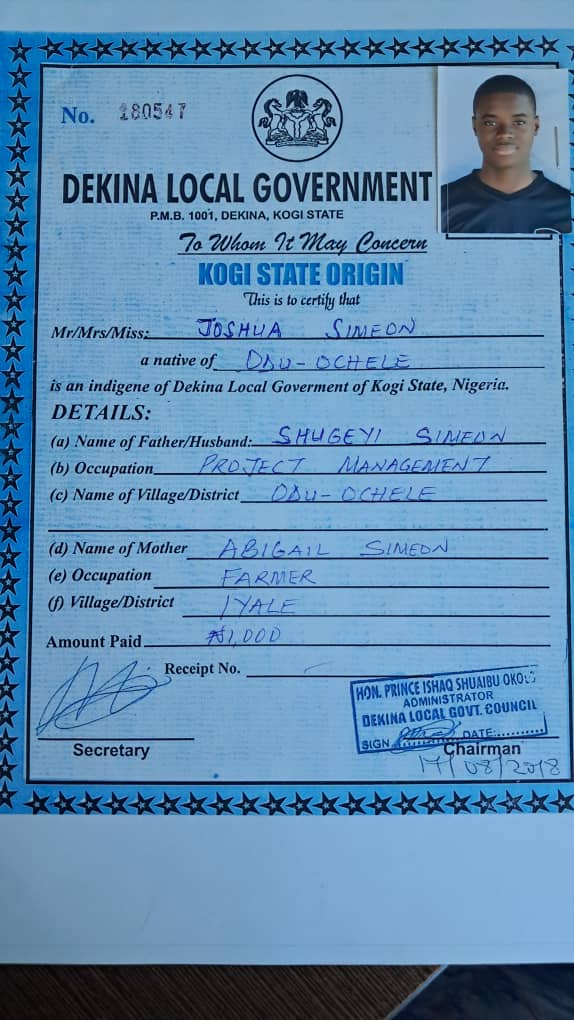 No. 180547
DEKINA LOCAL GOVERNMENT
P.M.B. 1001, DEKINA, KOGI STATE
To Whom It May Concern
KOGI STATE ORIGIN
This is to certify that
Mr/Mrs/Miss: JOSHUA SIMEON
a native of ODU-OCHELE
is an indigene of Dekina Local Goverment of Kogi State, Nigeria.
DETAILS:
(a) Name of Father/Husband: SHUGEYI SIMEON
(b) Occupation PROJECT MANAGEMENT
(c) Name of Village/District ODU-OCHELE
(d) Name of Mother ABIGAIL SIMEON
(e) Occupation FARMER
(f) Village/District IYALE
Amount Paid ₦1,000
Receipt No.
HON. PRINCE ISHAQ SHUAIBU
ADMINISTRATOR
DEKINA LOCAL GOVT. COUNCIL
SIGN DATE:
Secretary
Chairman
17/08/2018